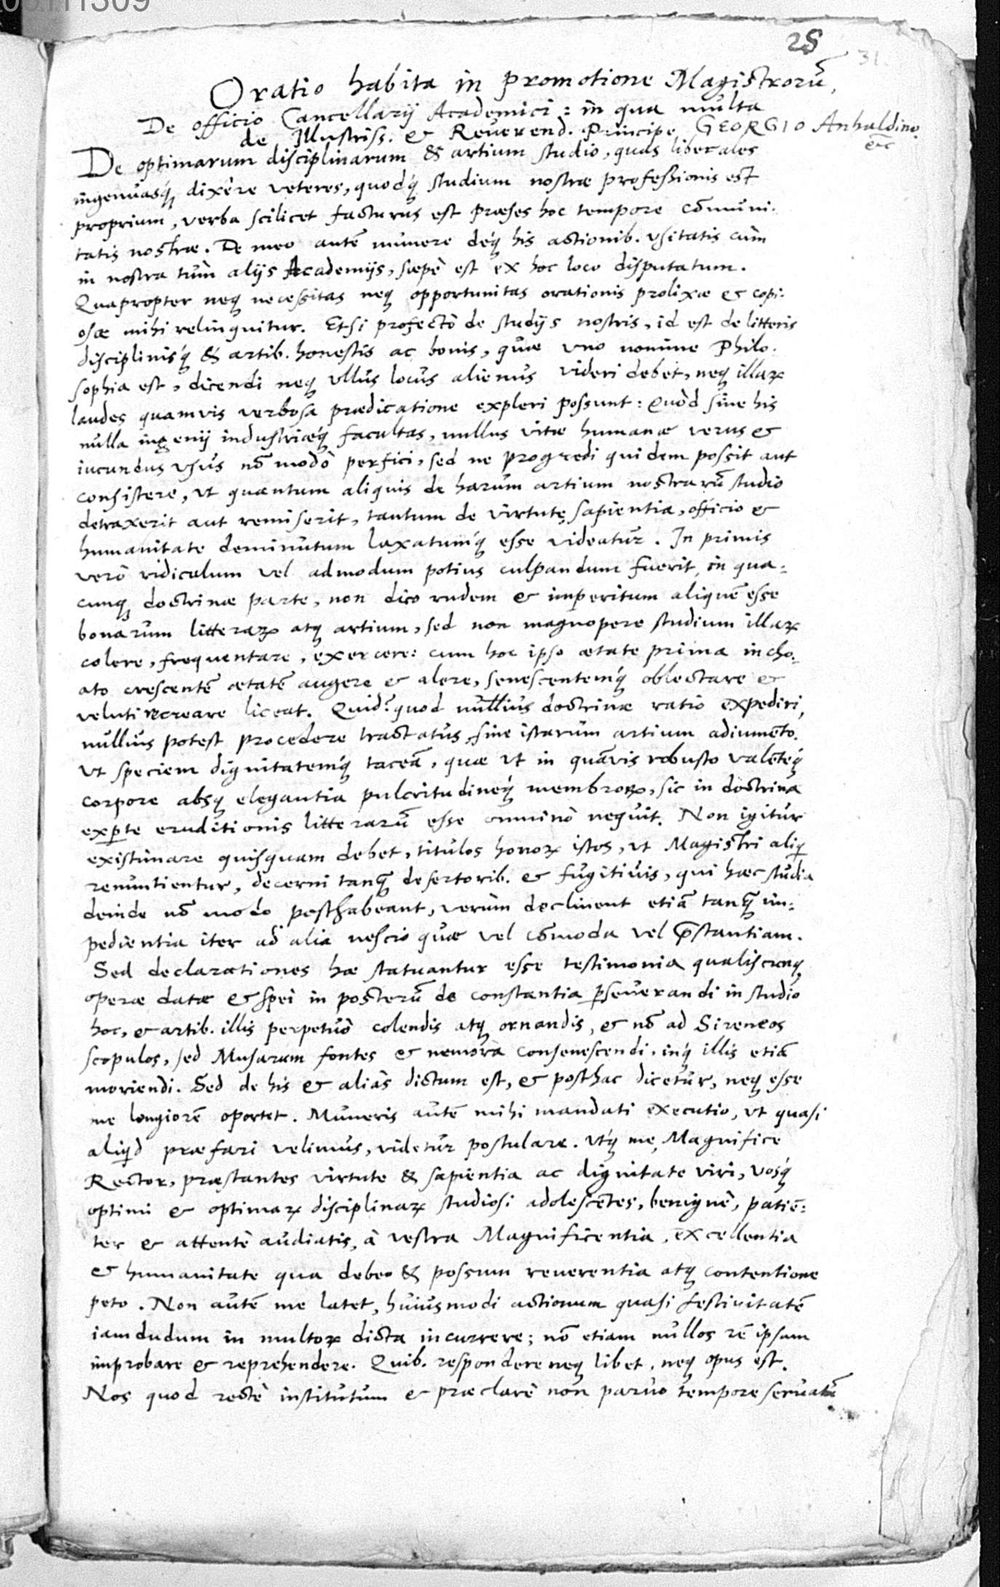 28
31.
Oratio habita in promotione Magistrorū,
De officio Cancellarij Academici: in qua multa
de Illustriss. & Reuerend. Principe GEORGIO Anhaldino.
etc
De optimarum disciplinarum & artium studio, quas liberales
ingenuasq́ꝫ dixêre veteres, quodq́ꝫ studium nostræ professionis est
proprium, verba scilicet facturus est præses hoc tempore cōmuni-
tatis nostræ. De meo autē munere deq́ꝫ his actionib. vsitatis cùm
in nostra tùm alijs Academijs, sæpè est ex hoc loco disputatum.
Quapropter neqꝫ necessitas neqꝫ opportunitas orationis prolixæ & copi-
osæ mihi relinquitur. Etsi profectò de studijs nostris, id est de litteris
disciplinisq́ꝫ & artib. honestis ac bonis, quæ vno nomine Philo-
sophia est, dicendi neqꝫ vllus locus alienus videri debet, neqꝫ illaꝝ
laudes quamuis verbosa prædicatione expleri possunt: Quòd sine his
nulla ingenij industriæq́ꝫ facultas, nullus vitæ humanæ verus &
iucundus vsus nō modò perfici, sed ne progredi quidem possit aut
consistere, vt quantum aliquis de harum artium nostrarū studio
detraxerit aut remiserit, tantum de virtute, sapientia, officio &
humanitate deminutum laxatumq́ꝫ esse videatur. In primis
verò ridiculum vel admodum potius culpandum fuerit, in qua-
cunqꝫ doctrinæ parte, non dico rudem & imperitum aliquē esse
bonarum litteraꝝ atqꝫ artium, sed non magnopere studium illaꝝ
colere, frequentare, exercere: cum hoc ipso ætate prima incho-
ato crescentē ætatē augere & alere, senescentemq́ꝫ oblectare &
veluti recreare liceat. Quid? quod nullius doctrinæ ratio expediri,
nullius potest procedere tractatus, sine istarum artium adiumento.
Vt speciem dignitatemq́ꝫ taceā, quæ vt in quāuis robusto valēteq́ꝫ
corpore absqꝫ elegantia pulcritudineq́ꝫ membroꝝ, sic in doctrina
experte eruditionis litterarū esse omninò nequit. Non igitur
existimare quisquam debet, titulos honoꝝ istos, vt Magistri aliq̃
renuntientur, decerni tanqꝫ desertorib. & fugitiuis, qui hæc studia
deinde nō modo posthabeant, verùm declinent etiā tanqꝫ im-
pedientia iter ad alia nescio quæ vel cōmoda vel p̄stantiam.
Sed declarationes hæ statuantur esse testimonia qualiscunqꝫ
operæ datæ & spei in posterū de constantia ꝑseuerandi in studio
hoc, & artib. illis perpetuò colendis atqꝫ ornandis, & nō ad Sireneos
scopulos, sed Musarum fontes & nemora consenescendi, inq́ꝫ illis etiā
moriendi. Sed de his & aliàs dictum est, & posthac dicetur, neqꝫ esse
me longiorē oportet. Muneris autē mihi mandati executio, vt quasi
aliq̃d præfari velimus, videtur postulare. Vtq́ꝫ me, Magnifice
Rector, præstantes virtute & sapientia ac dignitate viri, vosq́ꝫ
optimi & optimaꝝ disciplinaꝝ studiosi adolescētes, benignè, patiē-
ter & attentè audiatis, à vestra Magnificentia, excellentia
& humanitate qua debeo & possum reuerentia atqꝫ contentione
peto. Non autē me latet, huiusmodi actionum quasi festiuitatē
iamdudum in multoꝝ dicta incurrere; nō etiam nullos rē ipsam
improbare & reprehendere. Quib. respondere neqꝫ libet, neqꝫ opus est.
Nos quod rectè institutum & præclarè non paruo tempore seruatū